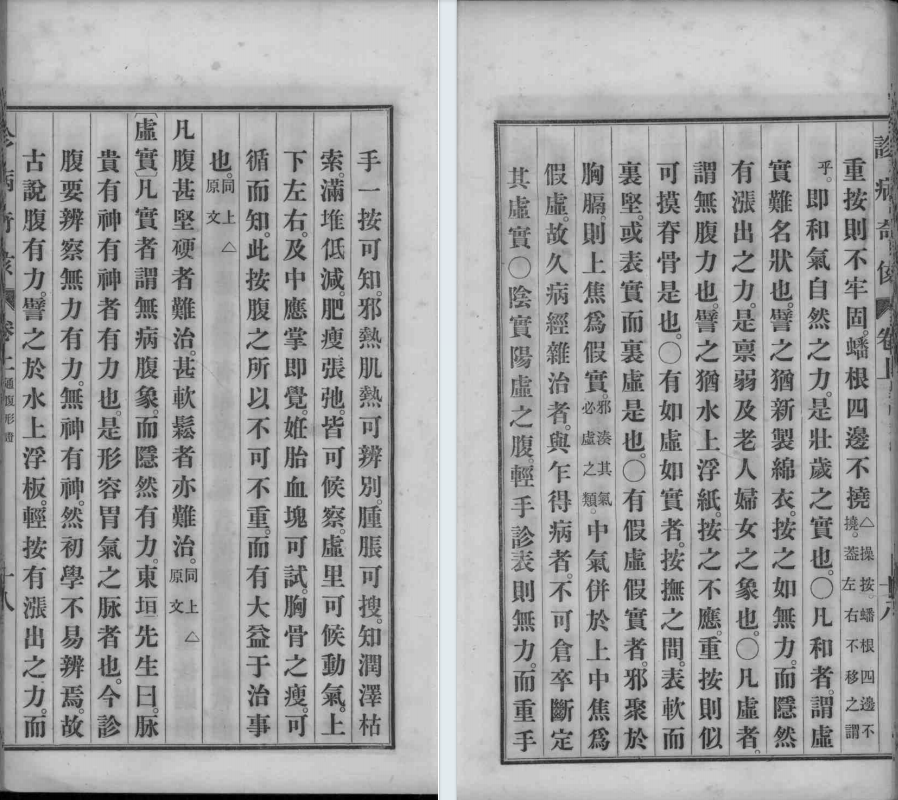 手一按可知。邪熱肌熱可辨別。腫脹可搜。知潤澤枯
索。滿堆低減。肥瘦張弛。皆可候察。虛里可候動氣。上
下左右。及中應掌即覺。妊胎血塊可試。胸骨之瘦。可
循而知。此按腹之所以不可不重。而有大益于治事
也。同上原文△
凡腹甚堅硬者難治。甚軟鬆者亦難治。同上原文△
〔虛實〕凡實者謂無病腹象。而隱然有力。東垣先生曰。脉
貴有神有神者有力也。是形容胃氣之脉者也。今診
腹要辨察無力有力。無神有神。然初學不易辨焉。故
古說腹有力。譬之於水上浮板。輕按有漲出之力。而
通腹形證
十八
診病奇侅 卷上
重按則不牢固。蟠根四邊不撓△操按。蟠根四邊不撓。蓋左右不移之謂
乎。即和氣自然之力。是壯歲之實也。〇凡和者。謂虛
實難名狀也。譬之猶新製綿衣。按之如無力。而隱然
有漲出之力。是禀弱及老人婦女之象也。〇凡虛者。
謂無腹力也。譬之猶水上浮紙。按之不應。重按則似
可摸脊骨是也。〇有如虛如實者。按撫之間。表軟而
裏堅。或表實而裏虛是也。〇有假虛假實者。邪聚於
胸膈。則上焦爲假實。邪湊其氣必虛之類。中氣併於上中焦爲
假虛。故久病經雜治者。與乍得病者。不可倉卒斷定
其虛實〇陰實陽虛之腹。輕手診表則無力。而重手